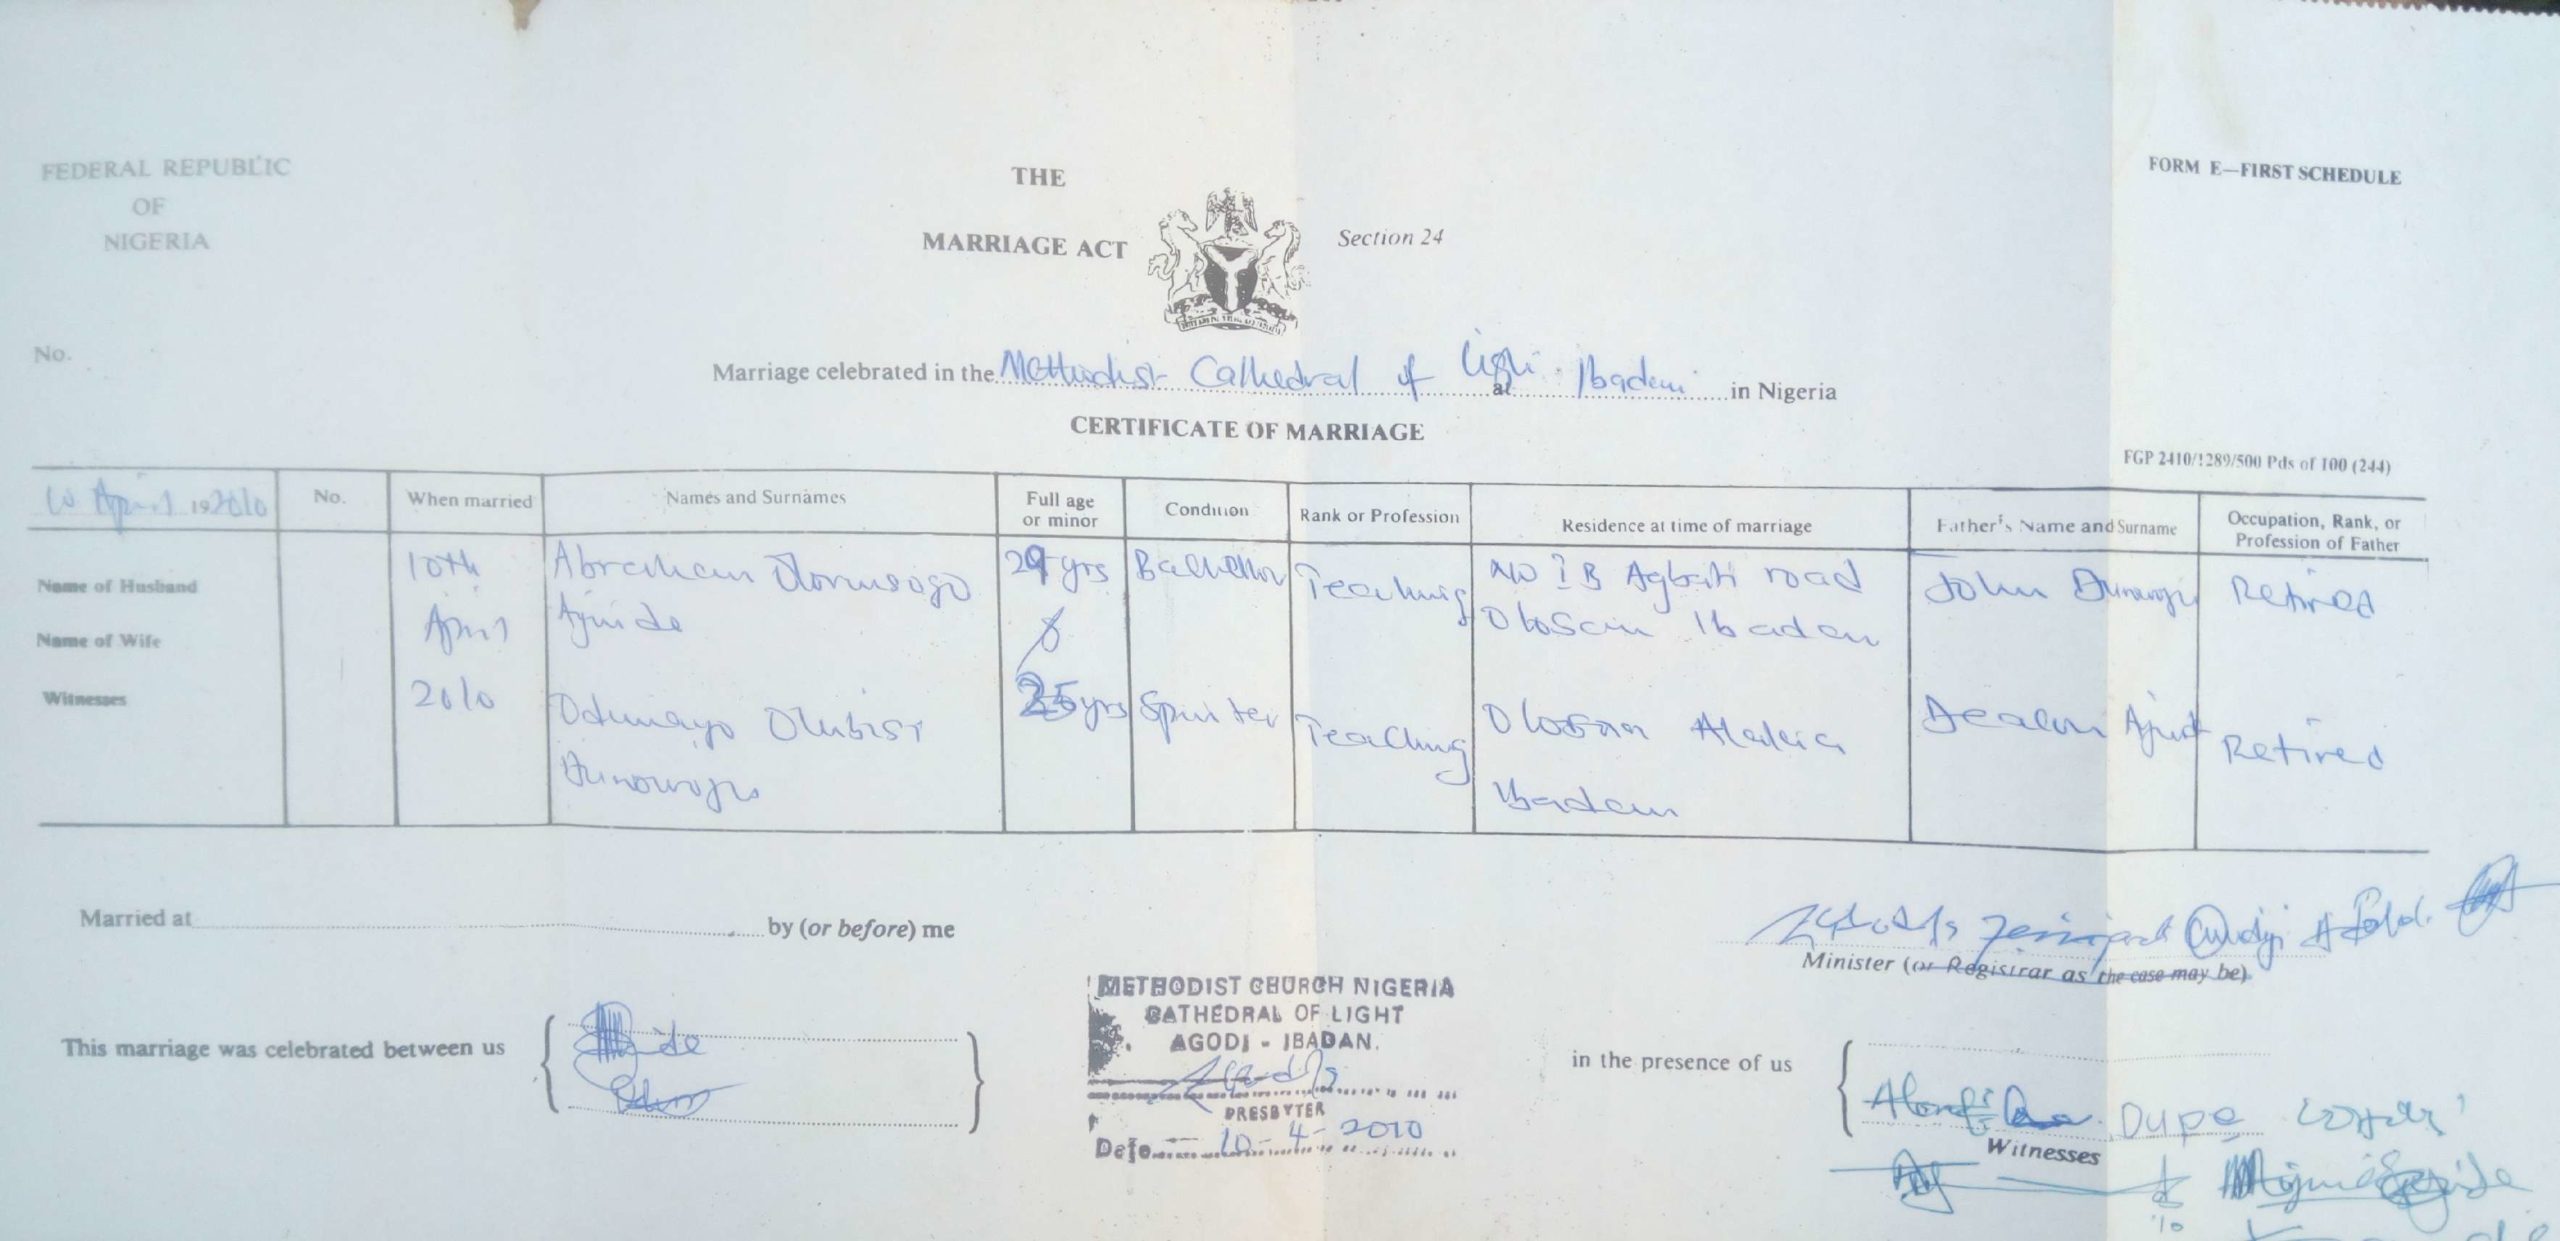 FEDERAL REPUBLIC
OF
NIGERIA
THE
MARRIAGE ACT
Section 24
FORM E—FIRST SCHEDULE
No.
Marriage celebrated in the Methodist Cathedral of Light at Ibadan in Nigeria
CERTIFICATE OF MARRIAGE
FGP 2410/1289/500 Pds of 100 (244)
10 April 192010
No.
When married
Names and Surnames
Full age
or minor
Condition
Rank or Profession
Residence at time of marriage
Father's Name and Surname
Occupation, Rank, or
Profession of Father
Name of Husband
Name of Wife
Witnesses
10th
April
2010
Abraham
Ajuide
29 yrs
Bachelor
Teaching
road
Olosan Ibadan
John
Retired
Odunayo Olubisi
25yrs
Spinster
Teaching
Olosan Alakia
Ibadan
Retired
Married at by (or before) me
Minister (or Registrar as the case may be)
This marriage was celebrated between us
METHODIST CHURCH NIGERIA
CATHEDRAL OF LIGHT
AGODI - IBADAN.
PRESBYTER
Date 10-4-2010
in the presence of us
Dupe
Witnesses